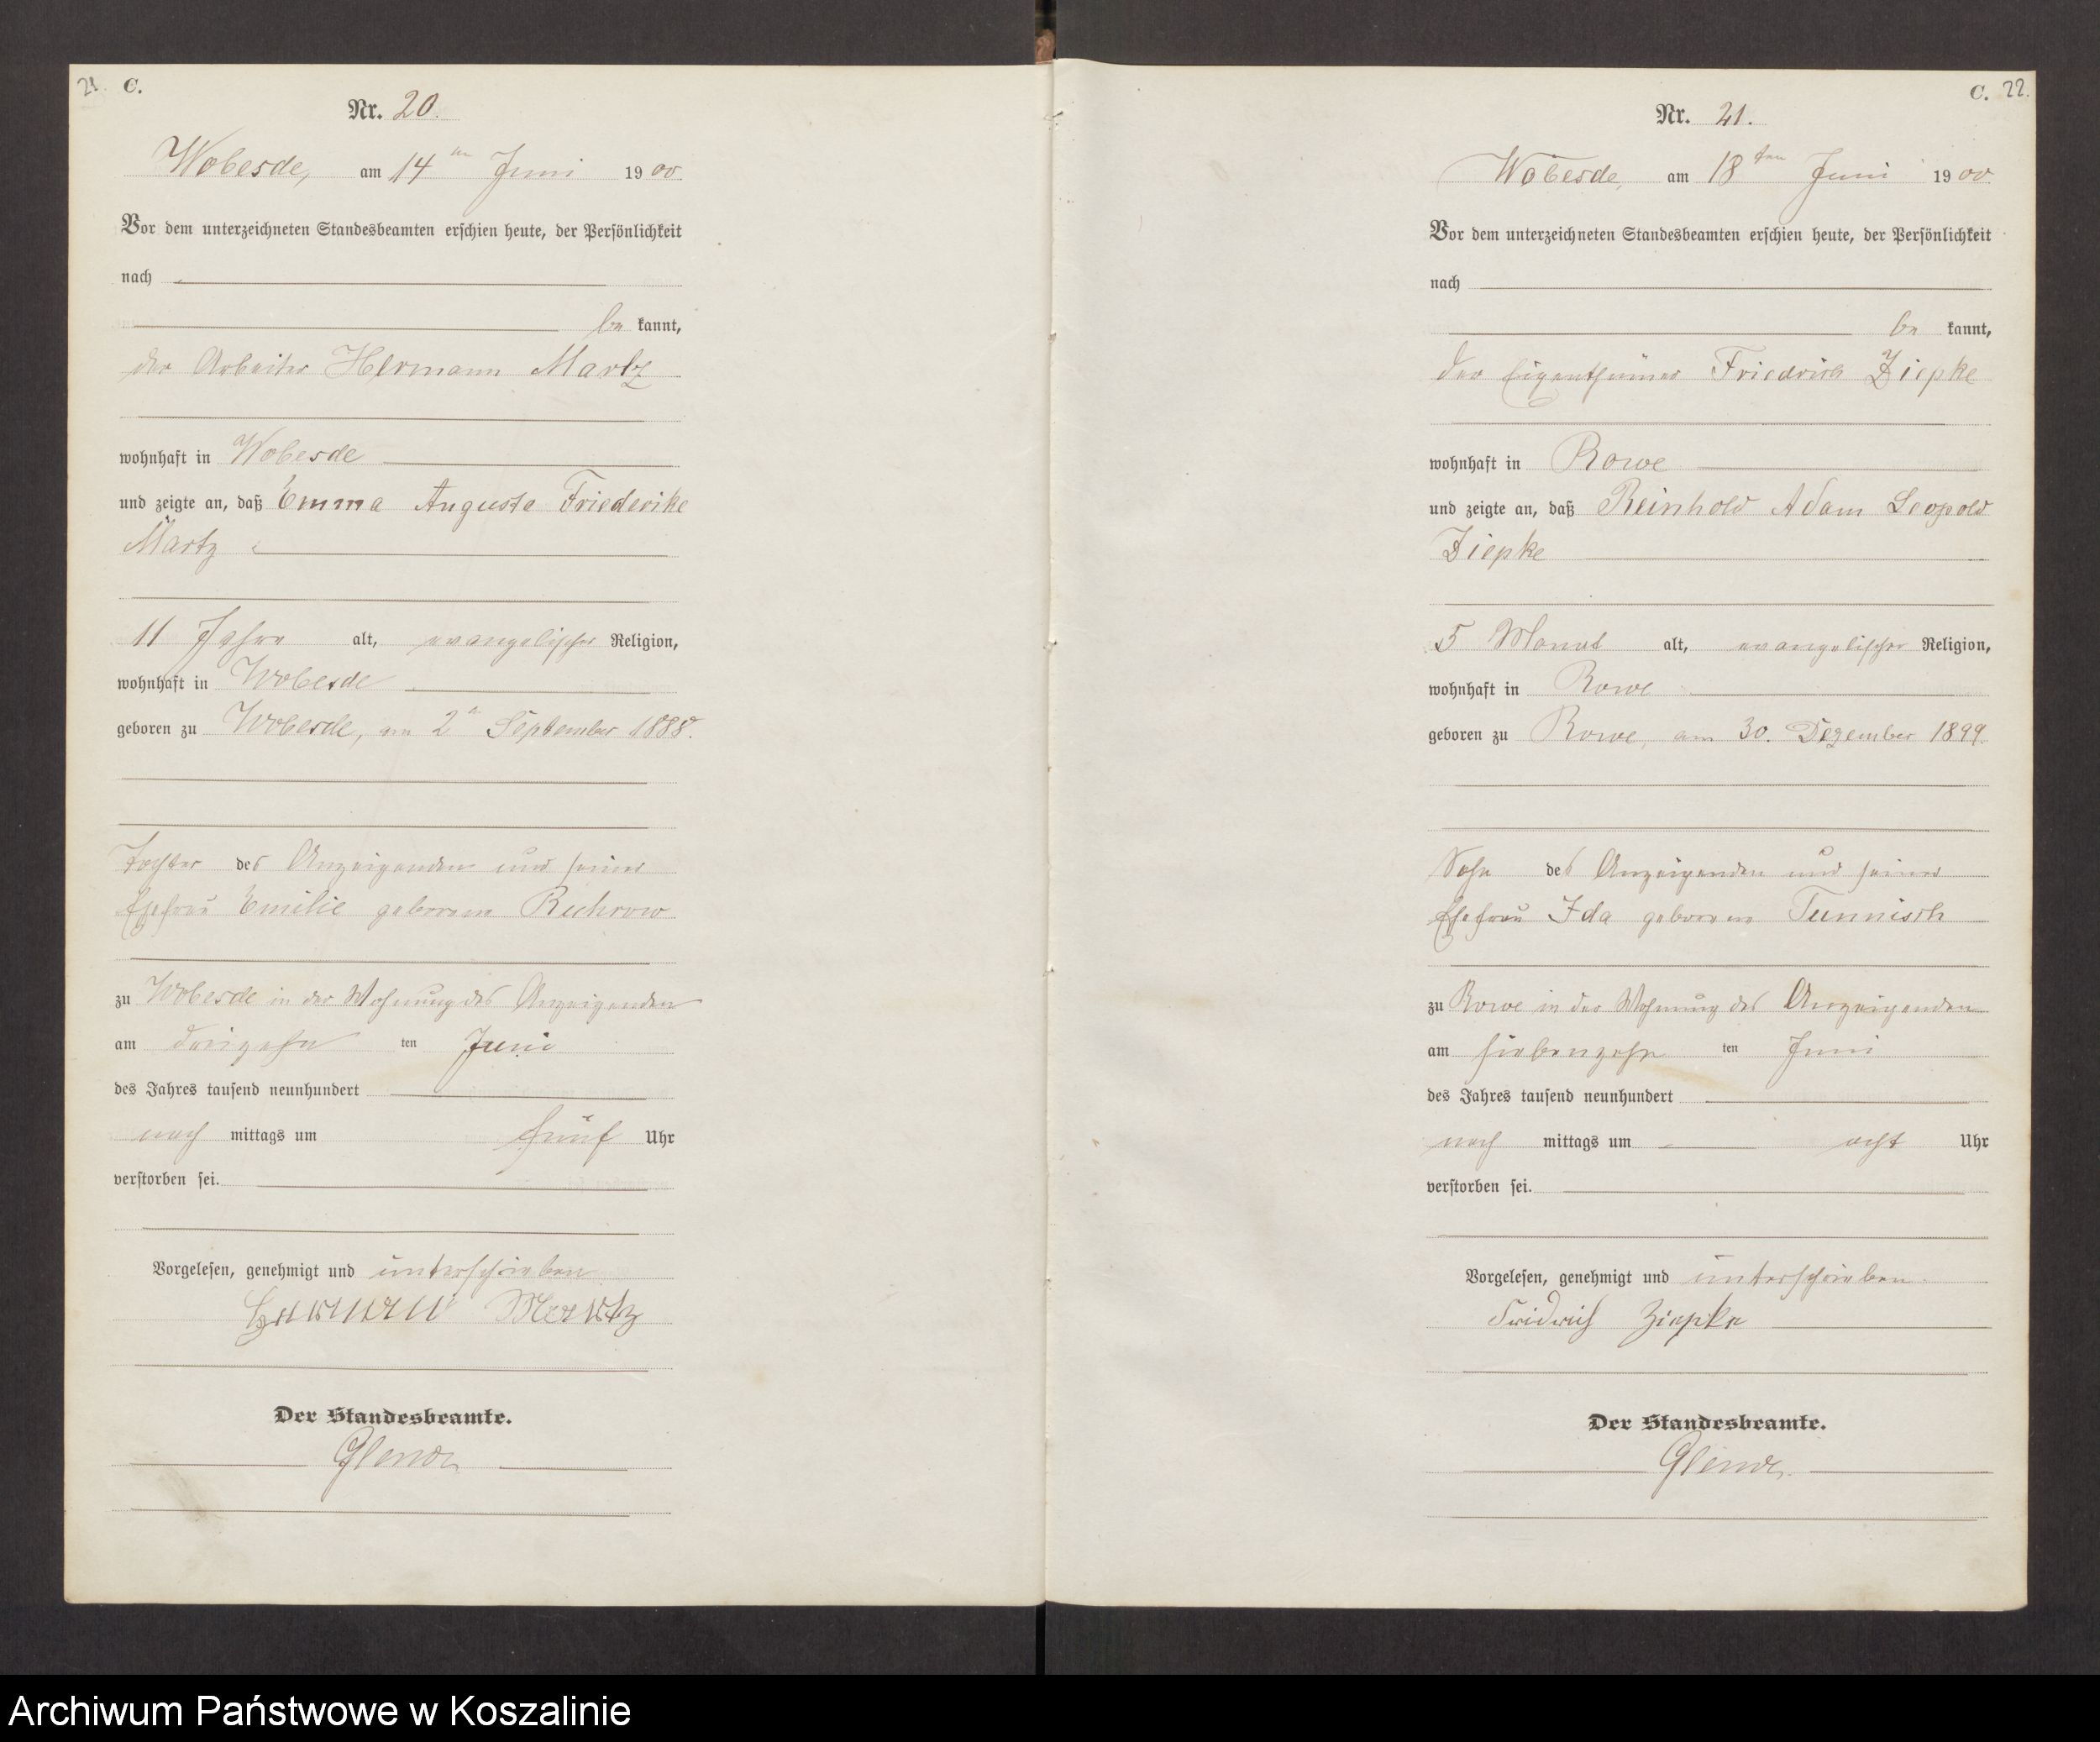 21. C.
Nr. 20.
Wobesde, am 14ten Juni 1900
Vor dem unterzeichneten Standesbeamten erschien heute, der Persönlichkeit
nach
be kannt,
der Arbeiter Hermann Martz
wohnhaft in Wobesde
und zeigte an, daß Emma Auguste Friederike
Martz
11 Jahre alt, evangelischer Religion,
wohnhaft in Wobesde
geboren zu Wobesde, am 2ten September 1888.
Tochter des Anzeigenden und seiner
Ehefrau Emilie geborene
zu Wobesde in der Wohnung des Anzeigenden
am dreizehn ten Juni
des Jahres tausend neunhundert
nach mittags um fünf Uhr
verstorben sei.
Vorgelesen, genehmigt und unterschrieben
Hermann Martz
Der Standesbeamte.
C. 22.
Nr. 21.
Wobesde, am 18ten Juni 1900
Vor dem unterzeichneten Standesbeamten erschien heute, der Persönlichkeit
nach
be kannt,
der Eigenthümer Friedrich Ziepke
wohnhaft in Rowe
und zeigte an, daß Reinhold Adam Leopold
Ziepke
5 Monat alt, evangelischer Religion,
wohnhaft in Rowe
geboren zu Rowe, am 30. Dezember 1899.
Sohn des Anzeigenden und seiner
Ehefrau Ida geborene
zu Rowe in der Wohnung des Anzeigenden
am siebenzehn ten Juni
des Jahres tausend neunhundert
nach mittags um acht Uhr
verstorben sei.
Vorgelesen, genehmigt und unterschrieben.
Fridrich Ziepke
Der Standesbeamte.
Archiwum Państwowe w Koszalinie